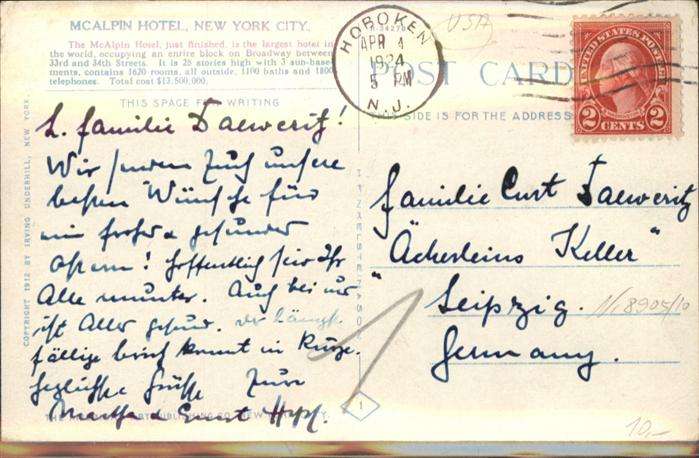 MCALPIN HOTEL, NEW YORK CITY.
The McAlpin Hotel, just finished, is the largest hotel in
the world, occupying an entire block on Broadway between
33rd and 34th Streets. It is 25 stories high with 3 sub-base-
ments, contains 1620 rooms, all outside, 1100 baths and 1800
telephones. Total cost $13,500,000.
THIS SPACE FOR WRITING
L. Familie Daeweritz!
Wir senden Euch unsere
besten Wünsche für
ein frohes & gesundes
Ostern! Hoffentlich seid Ihr
Alle munter. Auch bei uns
ist Alles gesund. der längst
fällige brief kommt in Kürze.
Herzlichste Grüße Eure
Martha & Ernst
COPYRIGHT 1912 BY IRVING UNDERHILL, NEW YORK.
HOBOKEN
APR 4
1924
5 PM
N.J.
USA
POST CARD
THIS SIDE IS FOR THE ADDRESS
UNITED STATES POSTAGE
2 CENTS 2
Familie Curt Daeweritz
"Äckerleins Keller"
Leipzig.
Germany.
1
10.-